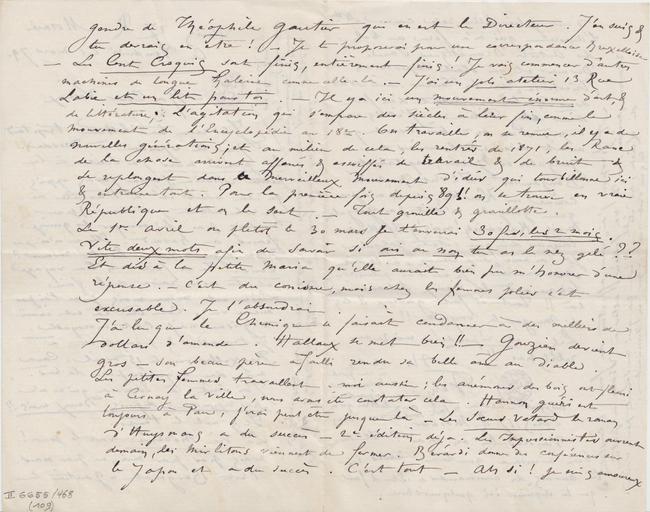 gendre de Théophile Gautier qui en est le Directeur. J'en suis &
tu devrais en être! – Je te proposerai pour une correspondance Bruxelloise
– Les Cent Croquis sont finis, entièrement finis! Je vais commencer d'autres
machines de longue haleine comme celle là – J'ai un joli atelier 13 Rue
Labie et un lit pour toi. – Il y a ici un mouvement énorme d'art, &
de littérature. L'agitation qui s'empare des siècles à leur fin, comme le
mouvement de l'Encyclopédie au 18me. On travaille, on se remue, il y a de
nouvelles générations, et au milieu de cela, les rentrés de 1871, les Rares
de la chose arrivent affamés & assoiffés de travail & de bruit &
se replongent dans le merveilleux mouvement d'idées qui tourbillonne ici
& entraine tout. Pour la première fois depuis 89!! on se trouve en vraie
République et on le sent. – Tout grouille & grouillotte.
Le 1er Avril ou plutôt le 30 mars je t'enverrai 30 frs, les 2 mois.
Vite deux mots afin de savoir si oui ou non tu as le nez gelé??
Et dis à la petite Maria qu'elle aurait bien pu m'honorer d'une
réponse. – C'est du cynisme, mais chez les femmes jolies c'est
excusable. Je l'absoudrai.
J'ai lu que le Chemique a faisait condamner à des milliers de
dollars d'amende. Hallaux se met bien!! – Gouzien devient
gros – son beau père Failli rendu sa belle âme au Diable.
Les petites femmes travaillent, moi aussi; les anémones des bois ont fleuri
à Cernay la Ville, nous avons été constater cela. Hannon guéri est
toujours à Paris, j'irai peut être jusque là – Les Sœurs Vatard le roman
d'Huysmans a du succès 2e édition déjà. Les Impressionnistes ouvrent
demain, les Mirlitons viennent de fermer. Berardi donne des conférences sur
le Japon et a du succès. C'est tout – Ah si! je suis amoureux
II 6655/468
(109)